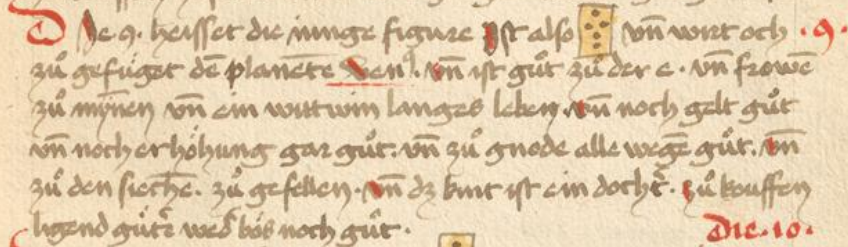 Die 9. heisset die iunge figure Ist also vn̄ wirt och · 9 ·
zů gefüget dē planete Ven⁹. vn̄ ist gůt zů der e · vn̄ frowē
zů mynen vn̄ ein wittwin langes leben. vn̄ noch gelt gůt
vn̄ noch erhöhung gar gůt. vn̄ zů gnode alle wegē gůt. vn̄
zů den siechē. zů gefellen. vn̄ dz kint ist ein dochť. zů kouffen
ligend gůť wed̓ bös noch gůt · Die · 10 ·